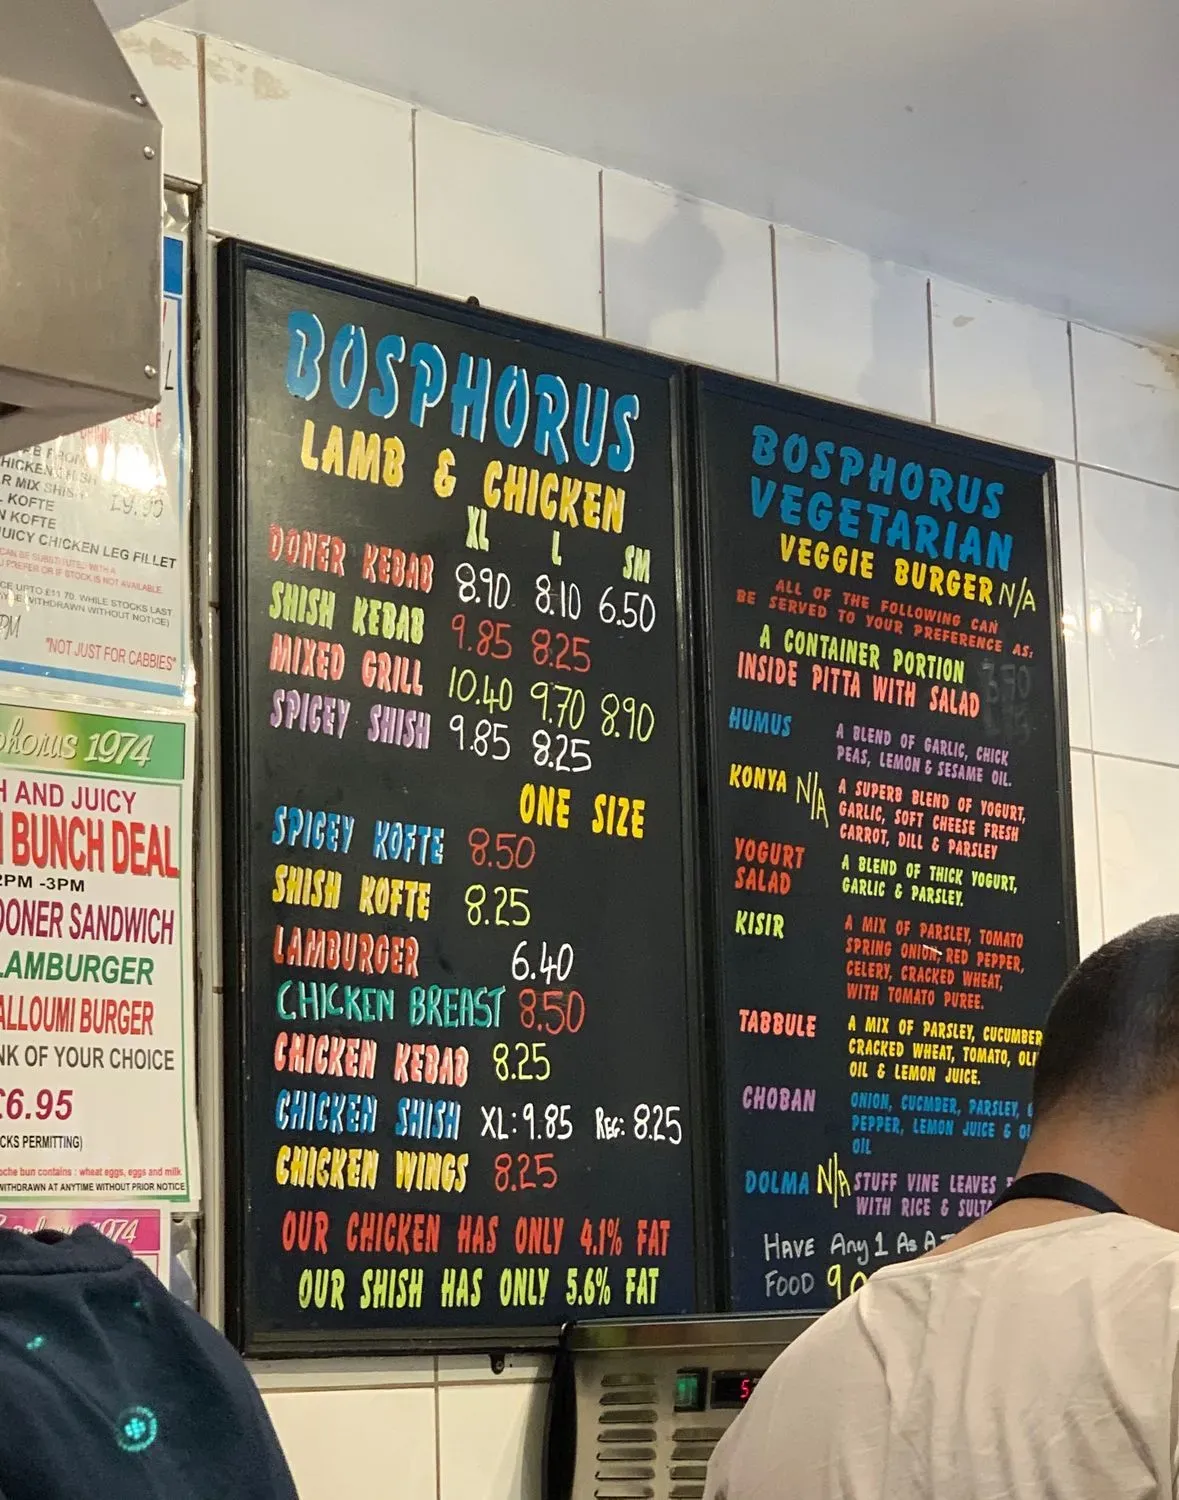 BOSPHORUS
LAMB & CHICKEN
XL L SM
DONER KEBAB 8.90 8.10 6.50
SHISH KEBAB 9.85 8.25
MIXED GRILL 10.40 9.70 8.90
SPICEY SHISH 9.85 8.25
ONE SIZE
SPICEY KOFTE 8.50
SHISH KOFTE 8.25
LAMBURGER 6.40
CHICKEN BREAST 8.50
CHICKEN KEBAB 8.25
CHICKEN SHISH XL: 9.85 REG: 8.25
CHICKEN WINGS 8.25
OUR CHICKEN HAS ONLY 4.1% FAT
OUR SHISH HAS ONLY 5.6% FAT
BOSPHORUS
VEGETARIAN
VEGGIE BURGER N/A
ALL OF THE FOLLOWING CAN
BE SERVED TO YOUR PREFERENCE AS:
A CONTAINER PORTION
INSIDE PITTA WITH SALAD
HUMUS A BLEND OF GARLIC, CHICK
PEAS, LEMON & SESAME OIL.
KONYA N/A A SUPERB BLEND OF YOGURT,
GARLIC, SOFT CHEESE FRESH
CARROT, DILL & PARSLEY
YOGURT A BLEND OF THICK YOGURT,
SALAD GARLIC & PARSLEY.
KISIR A MIX OF PARSLEY, TOMATO
SPRING ONION, RED PEPPER,
CELERY, CRACKED WHEAT,
WITH TOMATO PUREE.
TABBULE A MIX OF PARSLEY, CUCUMBER
CRACKED WHEAT, TOMATO,
OIL & LEMON JUICE.
CHOBAN ONION, CUCMBER, PARSLEY,
PEPPER, LEMON JUICE &
OIL
DOLMA N/A STUFF VINE LEAVES
WITH RICE &
HAVE Any 1 As A
FOOD
KOFTE
N KOFTE
JUICY CHICKEN LEG FILLET
CE UPTO £11.70. WHILE STOCKS LAST
WITHDRAWN WITHOUT NOTICE)
"NOT JUST FOR CABBIES"
phorus 1974
H AND JUICY
BUNCH DEAL
2PM -3PM
DONER SANDWICH
LAMBURGER
ALLOUMI BURGER
NK OF YOUR CHOICE
£6.95
CKS PERMITTING)
oche bun contains : wheat eggs, eggs and milk
WITHDRAWN AT ANYTIME WITHOUT PRIOR NOTICE
1974